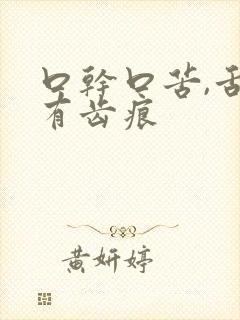 口幹口苦,舌
有齿痕
黄妍婷